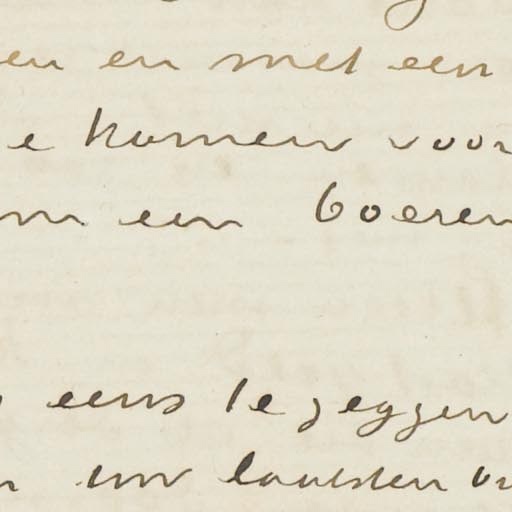 en en met een
e komen voor
om een boeren
eens te zeggen
uw laatsten br